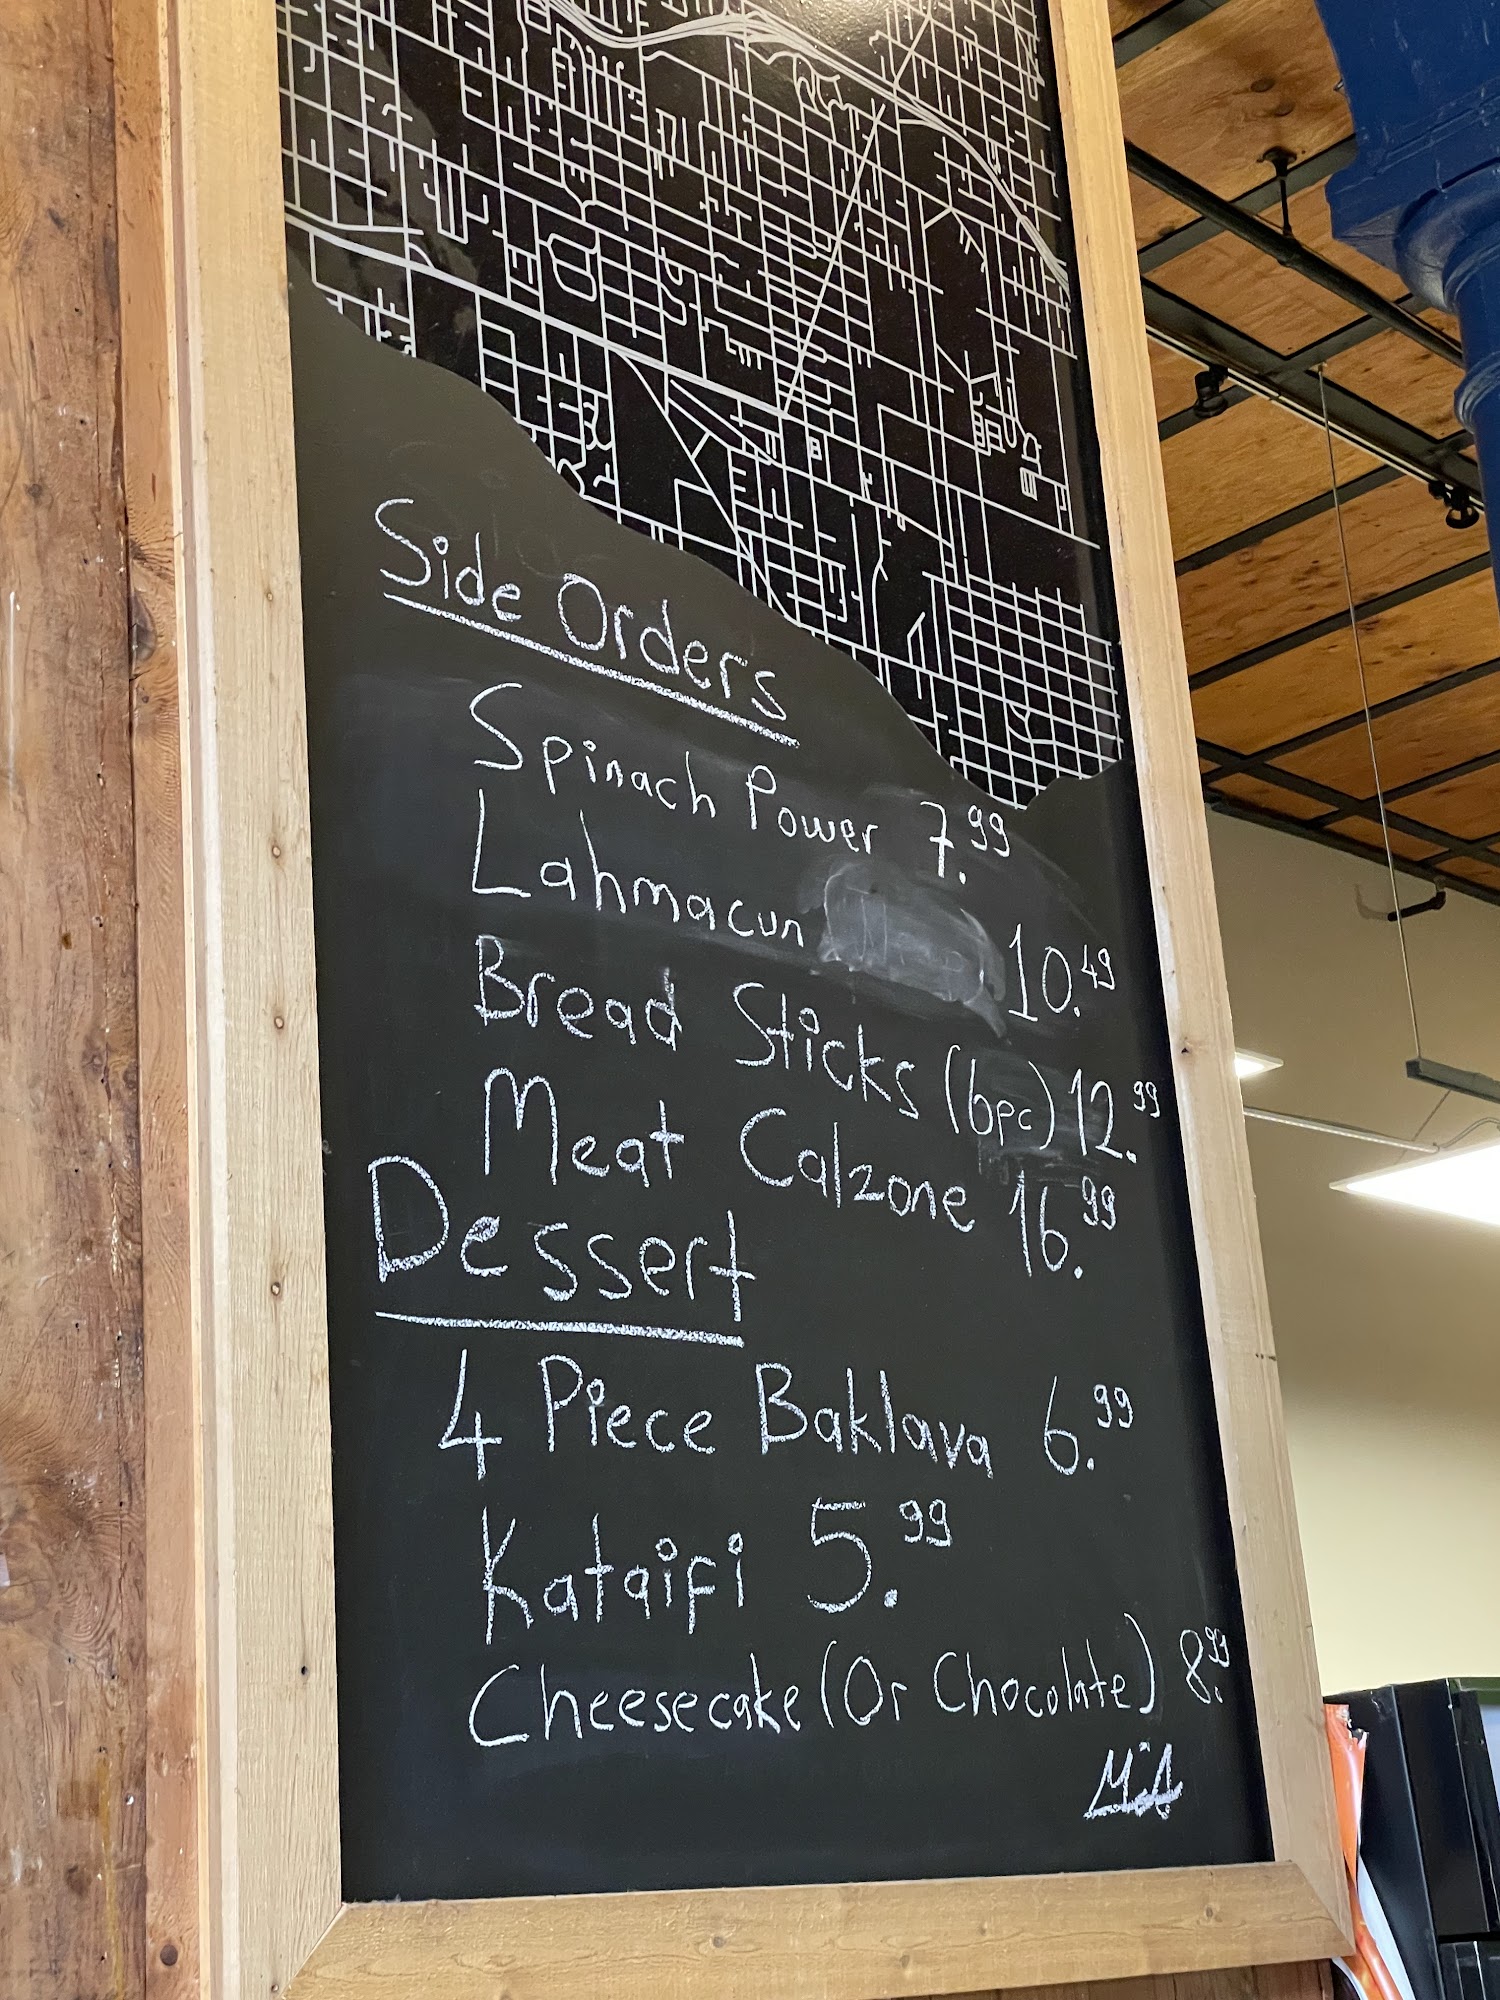 Side Orders
Spinach Power 7.99
Lahmacun 10.49
Bread Sticks (6pc) 12.99
Meat Calzone 16.99
Dessert
4 Piece Baklava 6.99
Kataifi 5.99
Cheesecake (Or Chocolate) 8.99